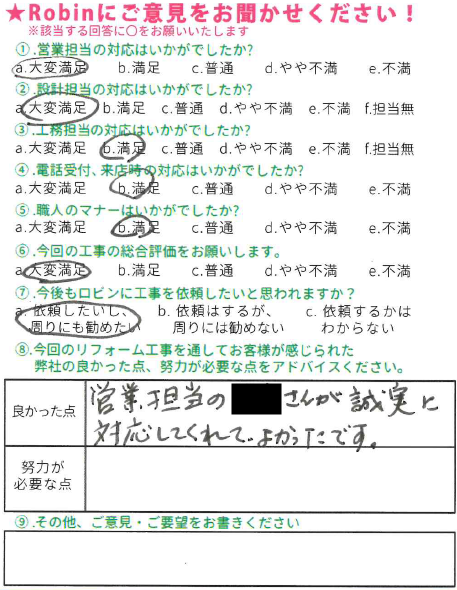 ★Robinにご意見をお聞かせください！
※該当する回答に〇をお願いいたします
①.営業担当の対応はいかがでしたか?
a.大変満足 b.満足 c.普通 d.やや不満 e.不満
②.設計担当の対応はいかがでしたか?
a.大変満足 b.満足 c.普通 d.やや不満 e.不満 f.担当無
③.工務担当の対応はいかがでしたか?
a.大変満足 b.満足 c.普通 d.やや不満 e.不満 f.担当無
④.電話受付、来店時の対応はいかがでしたか?
a.大変満足 b.満足 c.普通 d.やや不満 e.不満
⑤.職人のマナーはいかがでしたか?
a.大変満足 b.満足 c.普通 d.やや不満 e.不満
⑥.今回の工事の総合評価をお願いします。
a.大変満足 b.満足 c.普通 d.やや不満 e.不満
⑦.今後もロビンに工事を依頼したいと思われますか？
a. 依頼したいし、 b. 依頼はするが、 c. 依頼するかは
周りにも勧めたい 周りには勧めない わからない
⑧.今回のリフォーム工事を通してお客様が感じられた
弊社の良かった点、努力が必要な点をアドバイスください。
良かった点
営業担当の さんが誠実に
対応してくれて、よかったです。
努力が
必要な点
⑨.その他、ご意見・ご要望をお書きください